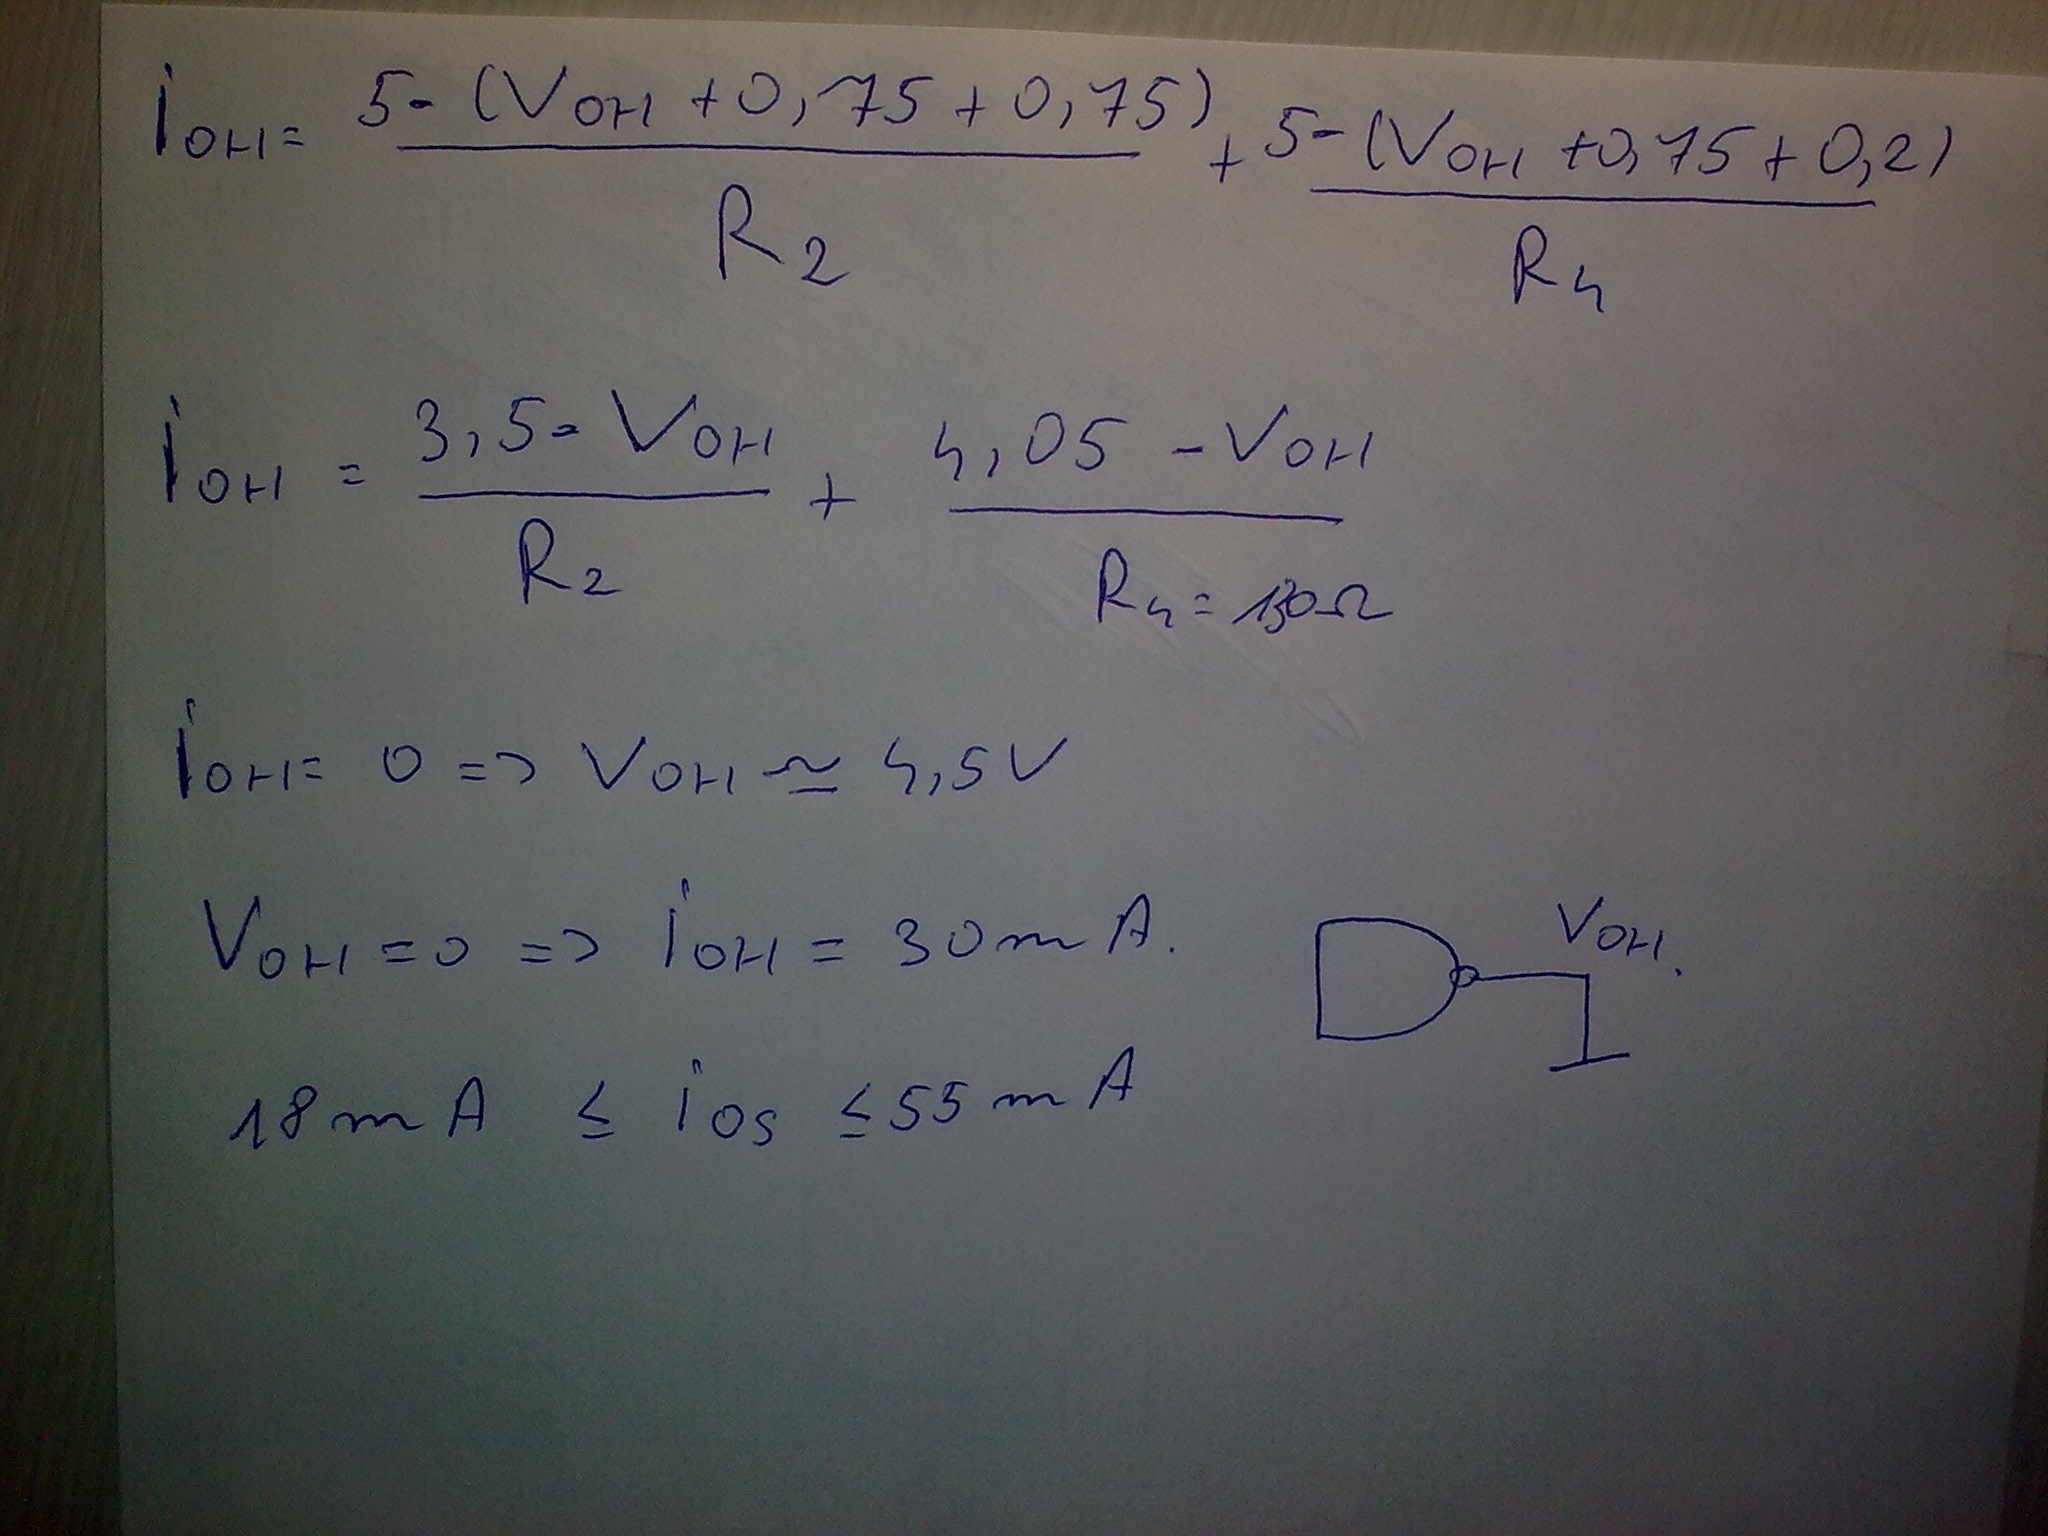 iOH = 5-(VOH+0,75+0,75)/R2 + 5-(VOH+0,75+0,2)/R4
iOH = 3,5-VOH/R2 + 4,05-VOH/R4=130Ω
iOH = 0 => VOH ≃ 4,5V
VOH = 0 => iOH = 30mA.
VOH.
18mA ≤ iOS ≤ 55mA